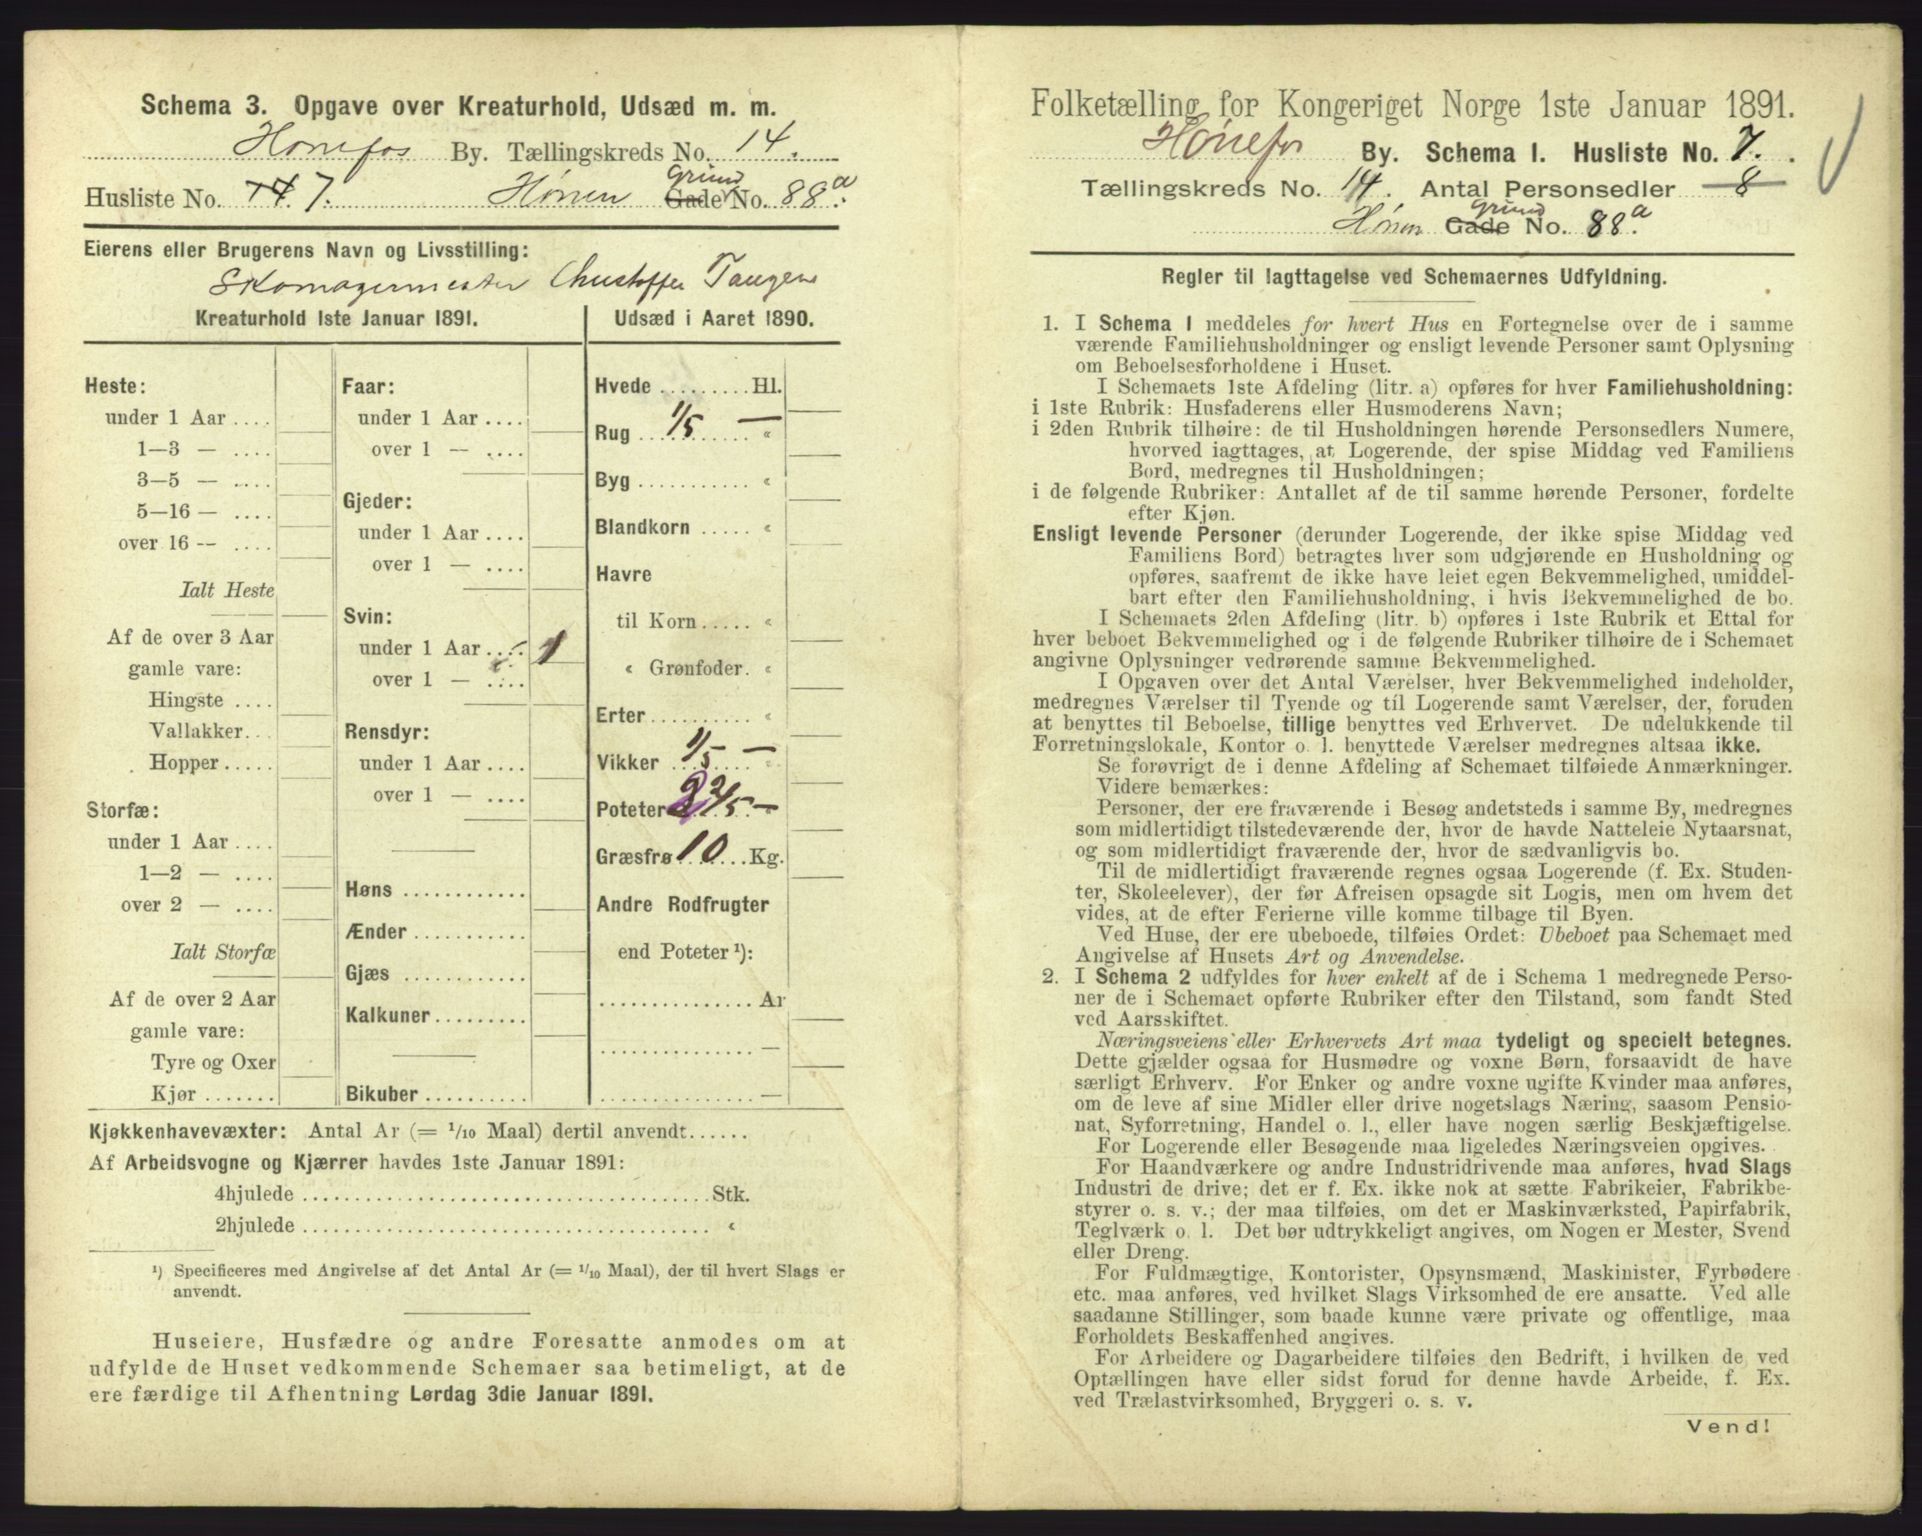 Schema 3. Opgave over Kreaturhold, Udsæd m. m.
Hønefos By. Tællingskreds No. 14.
Husliste No. 14. 7. Hønen Gade Grund No. 88a.
Eierens eller Brugerens Navn og Livsstilling:
Skomagermester Christoffer Tangen
Kreaturhold 1ste Januar 1891.
Heste:
under 1 Aar ....
1—3 — ....
3—5 — ....
5—16 — ....
over 16 — ....
Ialt Heste
Af de over 3 Aar
gamle vare:
Hingste ....
Vallakker...
Hopper .....
Storfæ:
under 1 Aar ....
1—2 — ....
over 2 — ....
Ialt Storfæ
Af de over 2 Aar
gamle vare:
Tyre og Oxer
Kjør .......
Faar:
under 1 Aar ....
over 1 — ....
Gjeder:
under 1 Aar ....
over 1 — ....
Svin:
under 1 Aar .... 1
over 1 — ....
Rensdyr:
under 1 Aar ....
over 1 — ....
Høns ............
Ænder ...........
Gjæs ............
Kalkuner.........
Bikuber ..........
Udsæd i Aaret 1890.
Hvede ......... Hl.
Rug ... 1/5 — «
Byg ............ «
Blandkorn ..... «
Havre
til Korn..... «
« Grønfoder. «
Erter.......... «
Vikker 1/5 — «
Poteter 2 2/5 — «
Græsfrø 10 ....Kg.
Andre Rodfrugter
end Poteter ¹):
................ Ar
................ —
................ —
Kjøkkenhavevæxter: Antal Ar (= 1/10 Maal) dertil anvendt......
Af Arbeidsvogne og Kjærrer havdes 1ste Januar 1891:
4hjulede ........................................ Stk.
2hjulede ........................................ «
¹) Specificeres med Angivelse af det Antal Ar (= 1/10 Maal), der til hvert Slags er
anvendt.
Huseiere, Husfædre og andre Foresatte anmodes om at
udfylde de Huset vedkommende Schemaer saa betimeligt, at de
ere færdige til Afhentning Lørdag 3die Januar 1891.
Folketælling for Kongeriget Norge 1ste Januar 1891.
Hønefos By. Schema 1. Husliste No. 7.
Tællingskreds No. 14. Antal Personsedler 8
Hønen Gade Grund No. 88a.
Regler til Iagttagelse ved Schemaernes Udfyldning.
1. I Schema 1 meddeles for hvert Hus en Fortegnelse over de i samme
værende Familiehusholdninger og ensligt levende Personer samt Oplysning
om Beboelsesforholdene i Huset.
I Schemaets 1ste Afdeling (litr. a) opføres for hver Familiehusholdning:
i 1ste Rubrik: Husfaderens eller Husmoderens Navn;
i 2den Rubrik tilhøire: de til Husholdningen hørende Personsedlers Numere,
hvorved iagttages, at Logerende, der spise Middag ved Familiens
Bord, medregnes til Husholdningen;
i de følgende Rubriker: Antallet af de til samme hørende Personer, fordelte
efter Kjøn.
Ensligt levende Personer (derunder Logerende, der ikke spise Middag ved
Familiens Bord) betragtes hver som udgjørende en Husholdning og
opføres, saafremt de ikke have leiet egen Bekvemmelighed, umiddel-
bart efter den Familiehusholdning, i hvis Bekvemmelighed de bo.
I Schemaets 2den Afdeling (litr. b) opføres i 1ste Rubrik et Ettal for
hver beboet Bekvemmelighed og i de følgende Rubriker tilhøire de i Schemaet
angivne Oplysninger vedrørende samme Bekvemmelighed.
I Opgaven over det Antal Værelser, hver Bekvemmelighed indeholder,
medregnes Værelser til Tyende og til Logerende samt Værelser, der, foruden
at benyttes til Beboelse, tillige benyttes ved Erhvervet. De udelukkende til
Forretningslokale, Kontor o. l. benyttede Værelser medregnes altsaa ikke.
Se forøvrigt de i denne Afdeling af Schemaet tilføiede Anmærkninger.
Videre bemærkes:
Personer, der ere fraværende i Besøg andetsteds i samme By, medregnes
som midlertidigt tilstedeværende der, hvor de havde Natteleie Nytaarsnat,
og som midlertidigt fraværende der, hvor de sædvanligvis bo.
Til de midlertidigt fraværende regnes ogsaa Logerende (f. Ex. Studen-
ter, Skoleelever), der før Afreisen opsagde sit Logis, men om hvem det
vides, at de efter Ferierne ville komme tilbage til Byen.
Ved Huse, der ere ubeboede, tilføies Ordet: Ubeboet paa Schemaet med
Angivelse af Husets Art og Anvendelse.
2. I Schema 2 udfyldes for hver enkelt af de i Schema 1 medregnede Perso-
ner de i Schemaet opførte Rubriker efter den Tilstand, som fandt Sted
ved Aarsskiftet.
Næringsveiens eller Erhvervets Art maa tydeligt og specielt betegnes.
Dette gjælder ogsaa for Husmødre og voxne Børn, forsaavidt de have
særligt Erhverv. For Enker og andre voxne ugifte Kvinder maa anføres,
om de leve af sine Midler eller drive nogetslags Næring, saasom Pensio-
nat, Syforretning, Handel o. l., eller have nogen særlig Beskjæftigelse.
For Logerende eller Besøgende maa ligeledes Næringsveien opgives.
For Haandværkere og andre Industridrivende maa anføres, hvad Slags
Industri de drive; det er f. Ex. ikke nok at sætte Fabrikeier, Fabrikbe-
styrer o. s. v.; der maa tilføies, om det er Maskinværksted, Papirfabrik,
Teglværk o. l. Det bør udtrykkeligt angives, om Nogen er Mester, Svend
eller Dreng.
For Fuldmægtige, Kontorister, Opsynsmænd, Maskinister, Fyrbødere
etc. maa anføres, ved hvilket Slags Virksomhed de ere ansatte. Ved alle
saadanne Stillinger, som baade kunne være private og offentlige, maa
Forholdets Beskaffenhed angives.
For Arbeidere og Dagarbeidere tilføies den Bedrift, i hvilken de ved
Optællingen have eller sidst forud for denne havde Arbeide, f. Ex.
ved Trælastvirksomhed, Bryggeri o. s. v.
Vend!